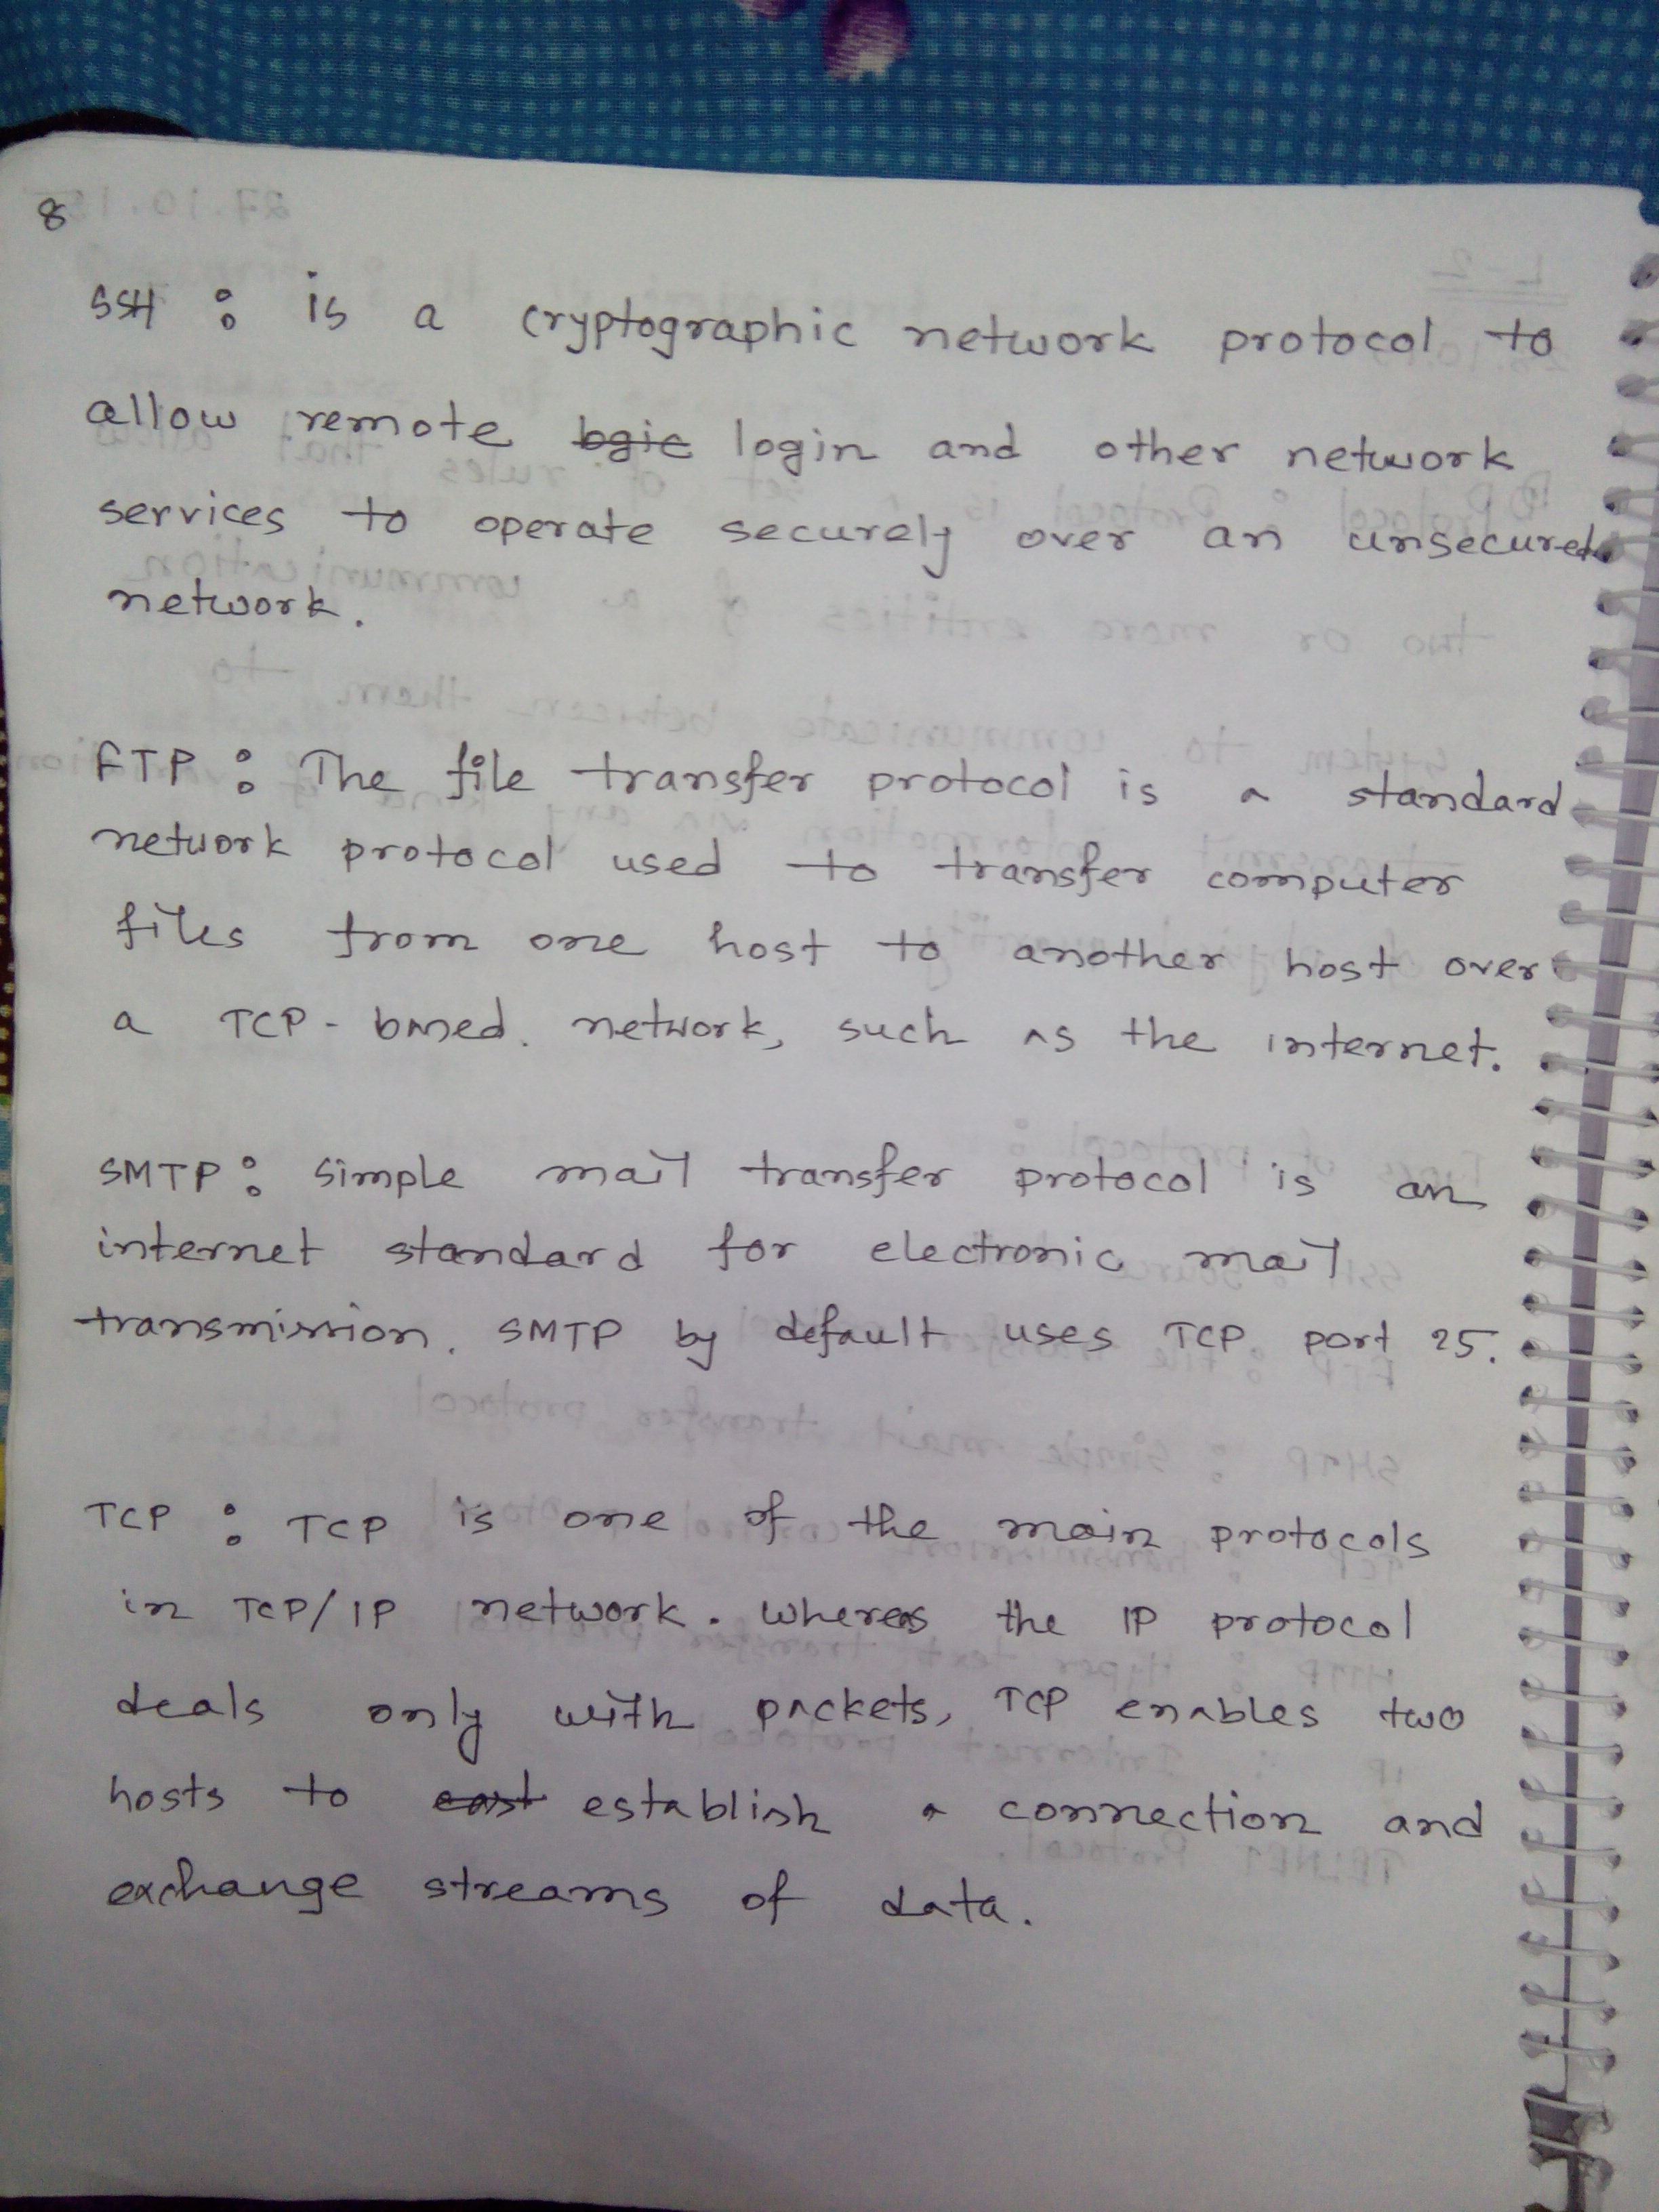 8
SSH : is a cryptographic network protocol to
allow remote login and other network
services to operate securely over an unsecured
network.
FTP : The file transfer protocol is a standard
network protocol used to transfer computer
files from one host to another host over
a TCP - based. network, such as the internet.
SMTP : Simple mail transfer protocol is an
internet standard for electronic mail
transmission. SMTP by default uses TCP port 25.
TCP : TCP is one of the main protocols
in TCP/IP network. Whereas the IP protocol
deals only with packets, TCP enables two
hosts to establish a connection and
exchange streams of data.